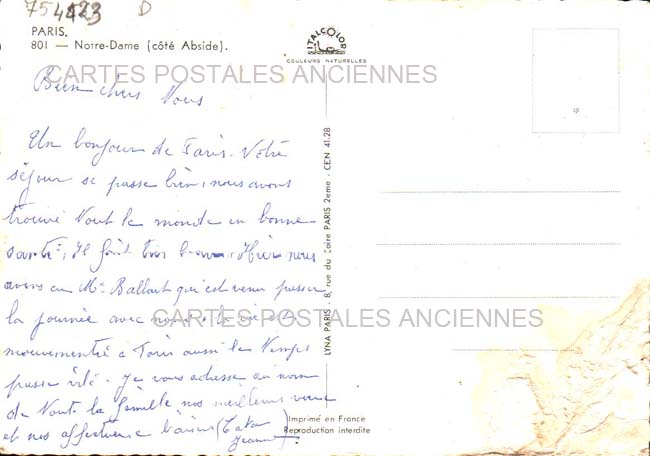 754423 D
PARIS.
801 — Notre-Dame (côté Abside).
ITALCOLOR
COULEURS NATURELLES
CARTES POSTALES ANCIENNES
Bien chers Vous
Un bonjour de Paris. Votre
séjour se passe bien, nous avons
trouvé Tout le monde en bonne
santé, Il fait très beau. Hier nous
avons eu Mr Ballart qui est venu passer
la journée avec nous, la vie est
mouvementée à Paris aussi le Temps
passe vite. Je vous adresse au nom
de Toute la famille nos meilleurs
et nos affectueux baisers (Tata
Jeanne)
CARTES POSTALES ANCIENNES
LYNA PARIS - 8, rue du Caire PARIS 2eme - CEN 41.28
Imprimé en France
Reproduction interdite